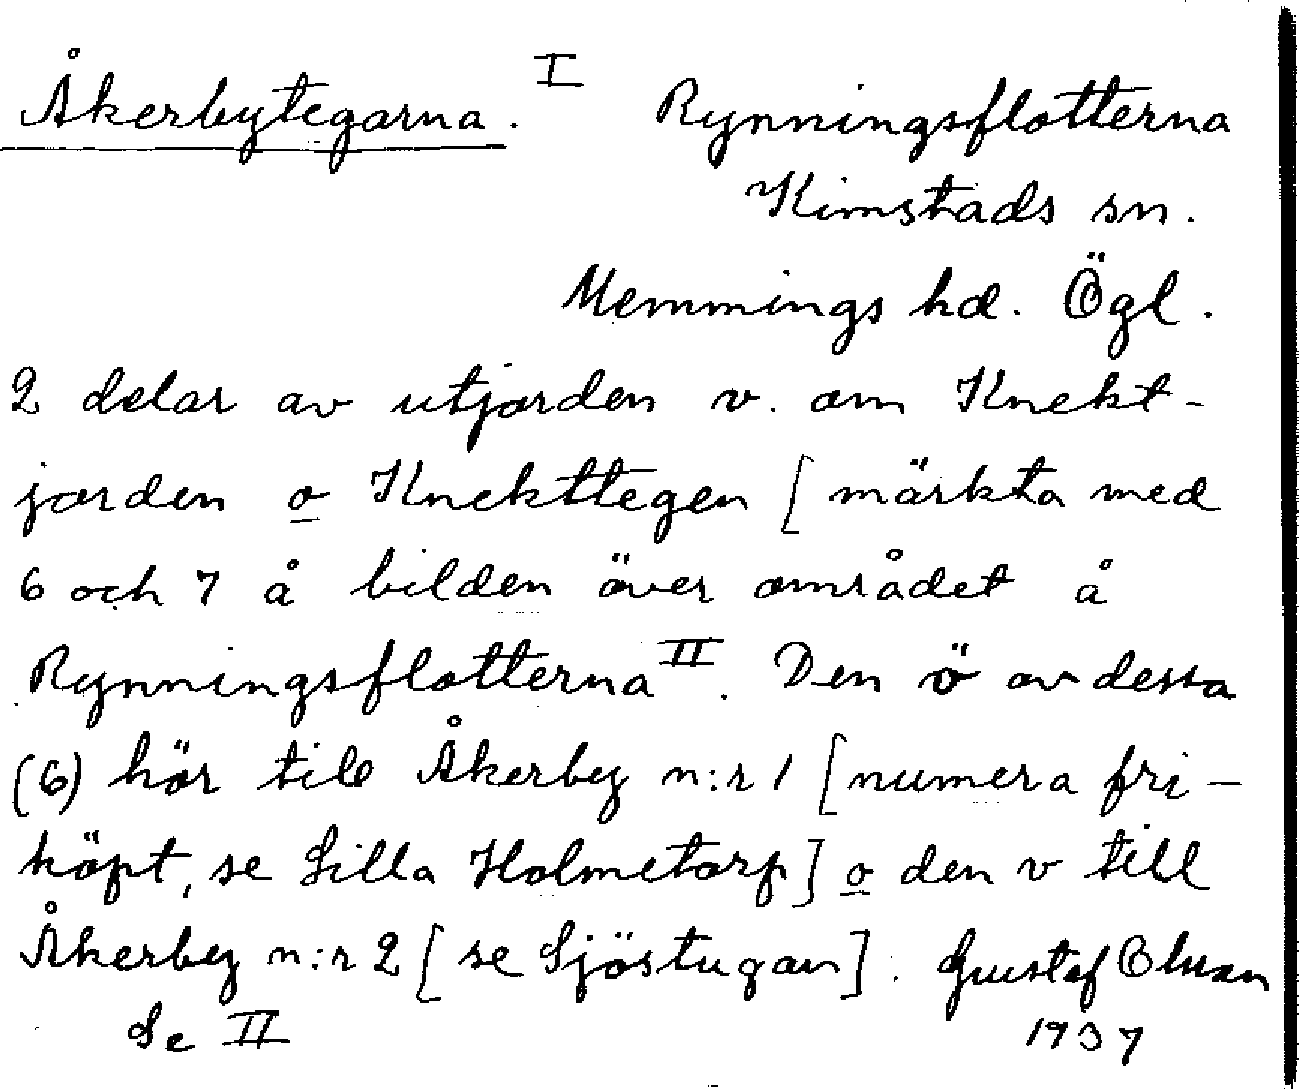 Åkerbytegarna. I Rynningsflotterna
Kimstads sn.
Memmings hd. Ögl.
2 delar av utjorden v. om Knekt-
jorden o Knekttegen [märkta med
6 och 7 å bilden över området å
Rynningsflotterna II. Den ö av dessa
(6) hör till Åkerby n:r 1 [numera fri-
köpt, se Lilla Holmetorp] o den v till
Åkerby n:r 2 [se Sjöstugan]. Gustaf Olsson
Se II 1937